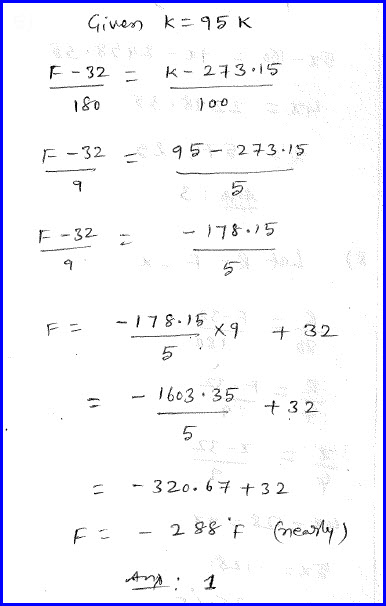 Given K = 95 K
F - 32 / 180 = K - 273.15 / 100
F - 32 / 9 = 95 - 273.15 / 5
F - 32 / 9 = - 178.15 / 5
F = - 178.15 / 5 × 9 + 32
= - 1603.35 / 5 + 32
= - 320.67 + 32
F = - 288°F (nearly)
Ans : 1